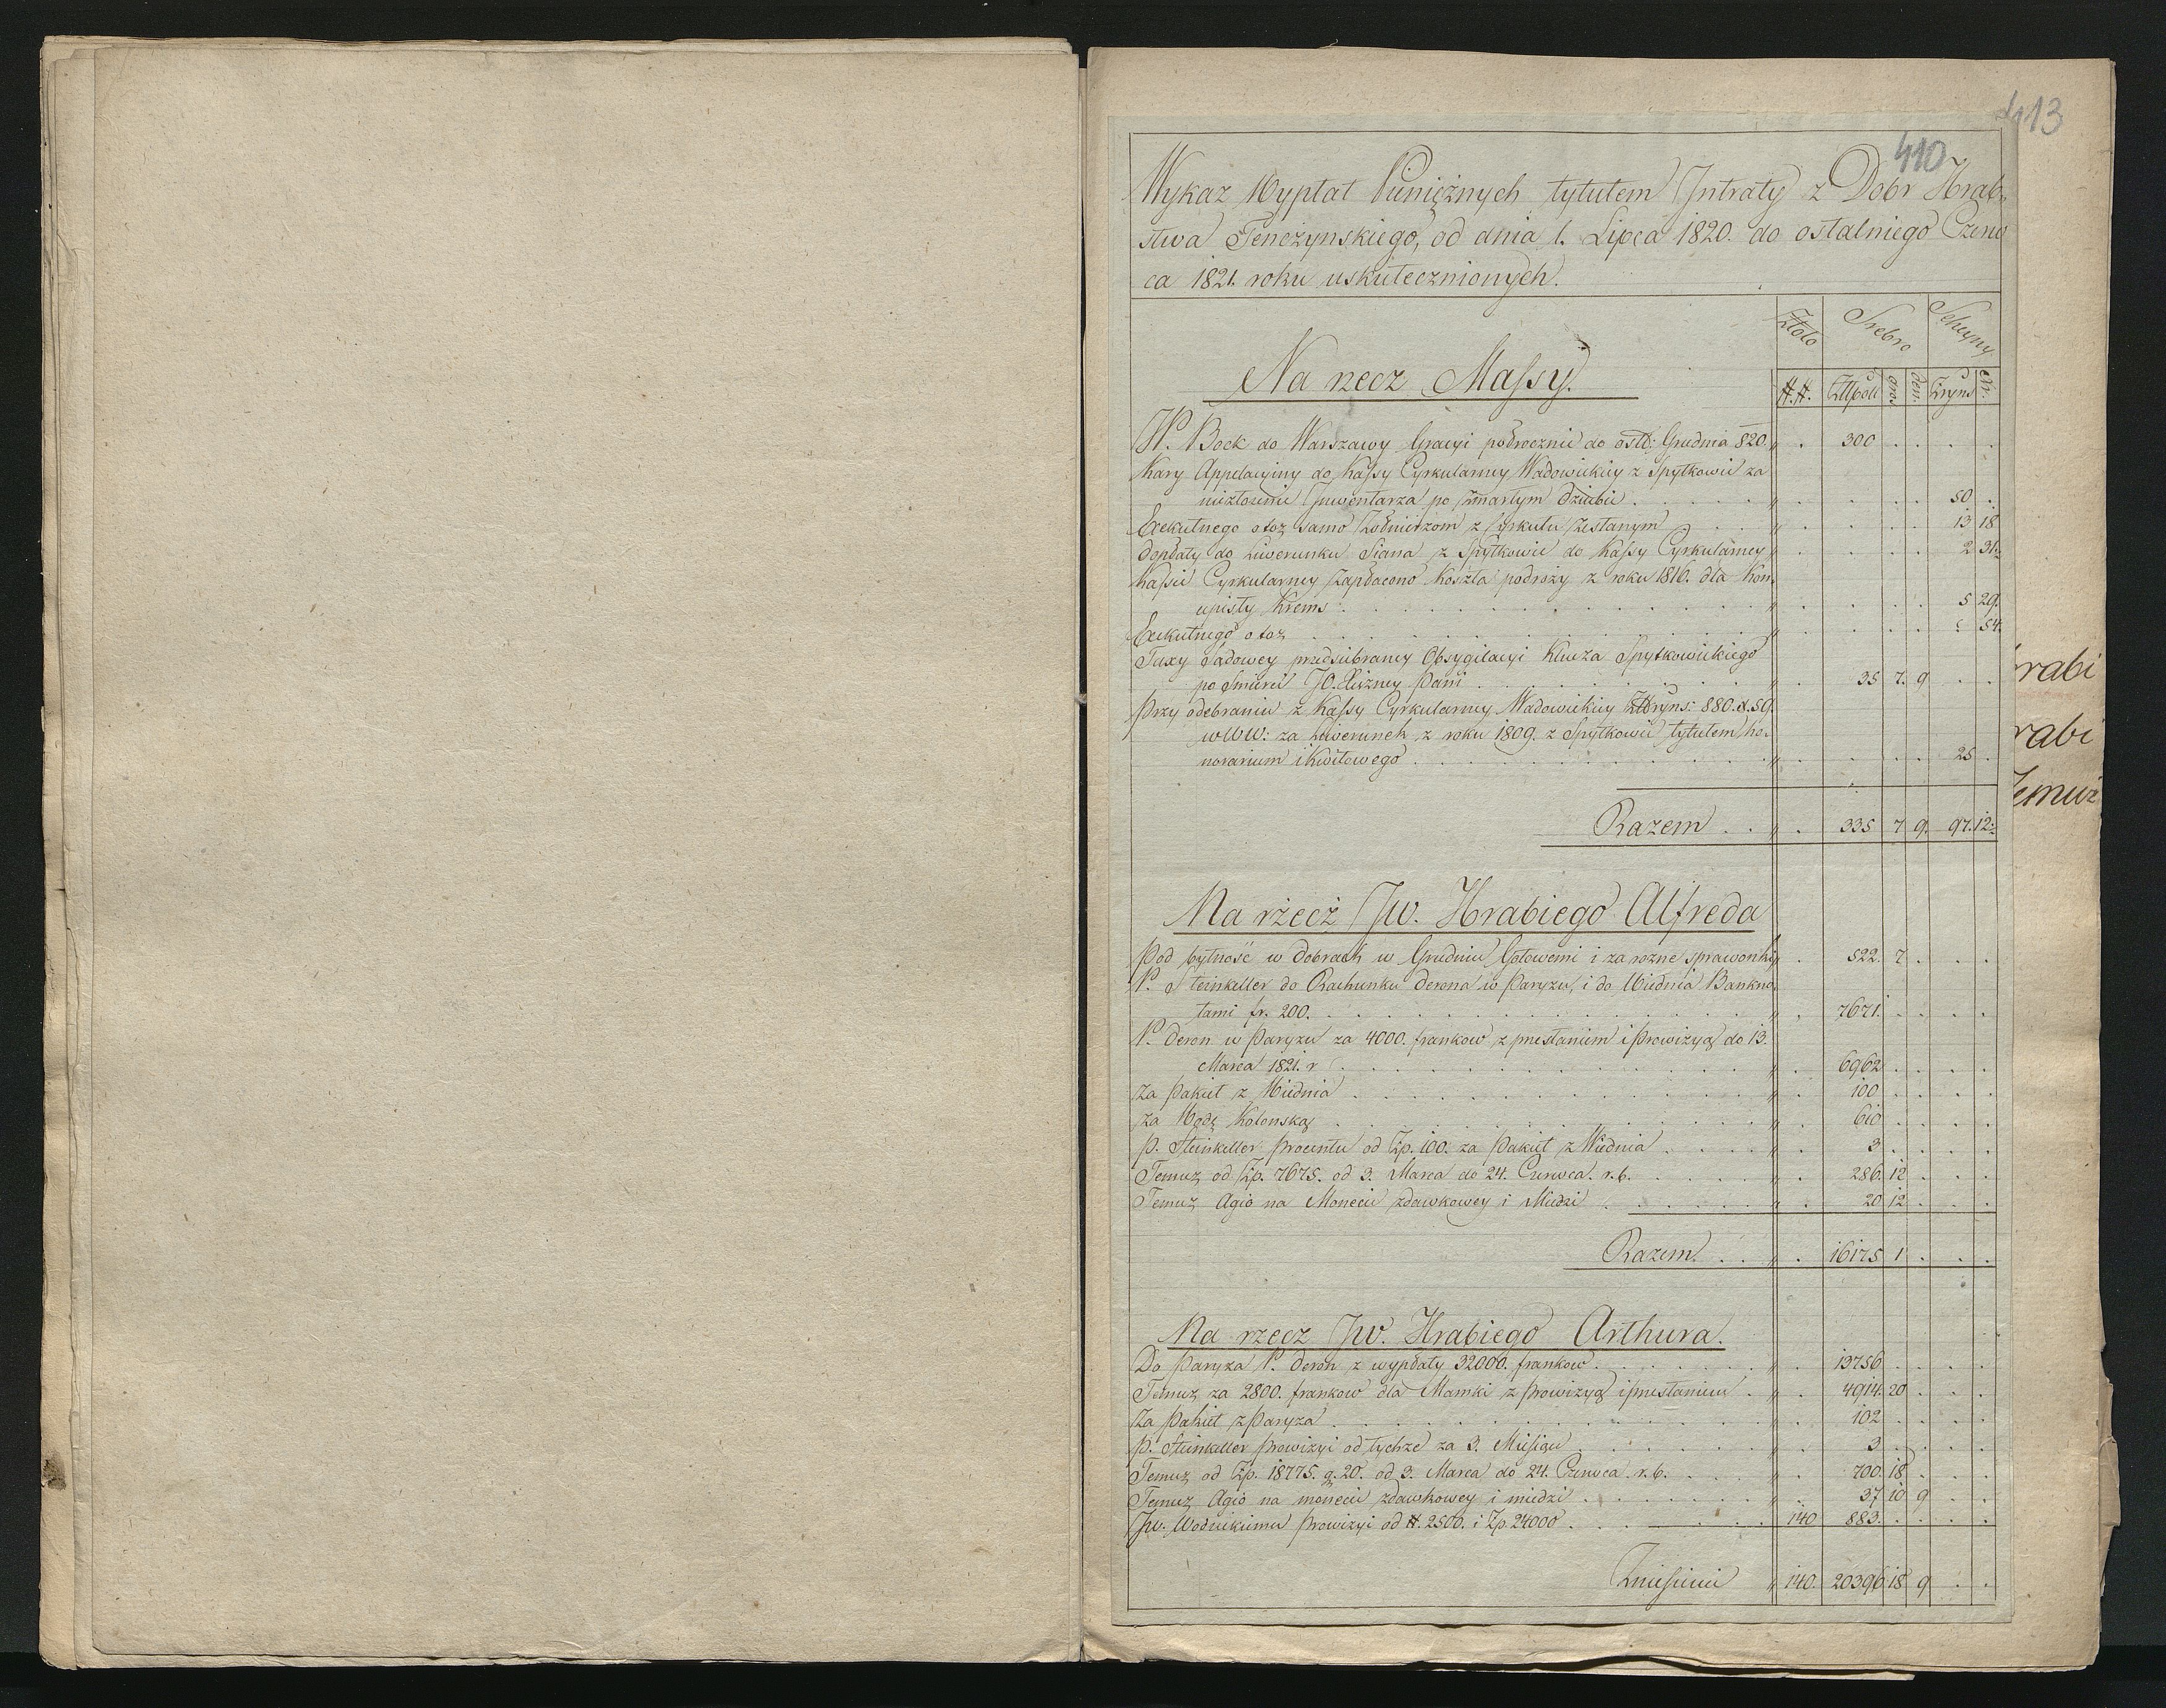 413
410
Wykaz Wypłat Pieniężnych tytułem Intraty z Dobr Hrab-
stwa Tenczynskiego, od dnia 1. Lipca 1820. do ostatniego Czerw
ca 1821. roku uskutecznionych.
Złoto Srebro Scheyny
Na rzecz Massy.
#.#. Złłpoll gro: den: Zryns Xr.
W. Bock do Warszawy Gracyi półrocznie do ostt: Grudnia 820. " . 300 . . . .
Kary Appellacyiney do Kassy Cyrkularney Wadowickiey z Spytkowic za
niezłożenie Inwentarza po zmarłym Dziubie . . . . " . . . . 50 .
Exekutnego otoż samo Żołnierzom z Cyrkułu zesłanym . . . " . . . . 13 18
Dopłaty do Liwerunku Siana z Spytkowic do Kassy Cyrkularney " . . . . 2 31
Kassie Cyrkularney zapłacono Koszta podroży z roku 1816. dla Kon-
cypisty Krems . . . . " . . . . 5 29.
Exekutnego otoż . . . . " . . . . . 54.
Taxy Sądowey przedsiebraney Obsygilacyi Klucza Spytkowickiego
po Śmierci JO. Xiężney Pani . . . . " . 35 7. 9 . .
Przy odebraniu z Kassy Cyrkularney Wadowickiey Złłryns: 880. x. 59.
w WW: za Liwerunek z roku 1809. z Spytkowic tytułem ho-
norarium i Kwitowego . . . . " . . . . 25 .
Razem . . " . 335 7 9. 97. 12
Na rzecz Jw. Hrabiego Alfreda
Pod bytność w Dobrach w Grudniu Gotowemi i za rozne sprawonki " . 522. 7 . . .
P. Steinkeller do Rachunku Derona w Paryzu, i do Wiednia Bankno
tami fr. 200. . . . . " . 7671. . . . .
P. Deron w Paryzu za 4000. frankow z przesłaniem i Prowizyą do 13.
Marca 1821. r . . . . " . 6962 . . . .
Za Pakiet z Wiednia . . . . " . 100 . . . .
Za Wodę Kolonską . . . . " . 610 . . . .
P. Steinkeller procentu od Zp. 100. za Pakiet z Wiednia . . . . " . 3 . . . .
Temuż od Zp. 7675. od 3. Marca do 24. Czerwca. r. b. . . . . " . 286. 12 . . .
Temuż Agio na Monecie zdawkowey i Miedzi . . . . " . 20 12 . . .
Razem. . . " . 16175 1 . . .
Na rzecz Jw. Hrabiego Arthura.
Do Paryza P. Deron z wypłaty 32000. frankow. . . . . " . 13756 . . . .
Temuż za 2800. frankow dla Mamki z Prowizyą i przesłaniem . " . 4914. 20 . . .
Za Pakiet z Paryza . . . . " . 102 . . . .
P. Steinkeller Prowizyi od tychże za 3. Miesiące . . . . " . 3 . . . .
Temuż od Zp. 18775. g. 20. od 3. Marca do 24. Czerwca. r. b. . . . . " . 700. 18 . . .
Temuż Agio na monecie zdawkowey i miedzi . . . . " . 37 10 9 . .
Jw. Wodzickiemu Prowizyi od #. 2500. i Zp. 24000 . . . . " 140 883. . . . .
Zniesienie " 140. 20396 18 9 . .
rabi
rabi
Temuż